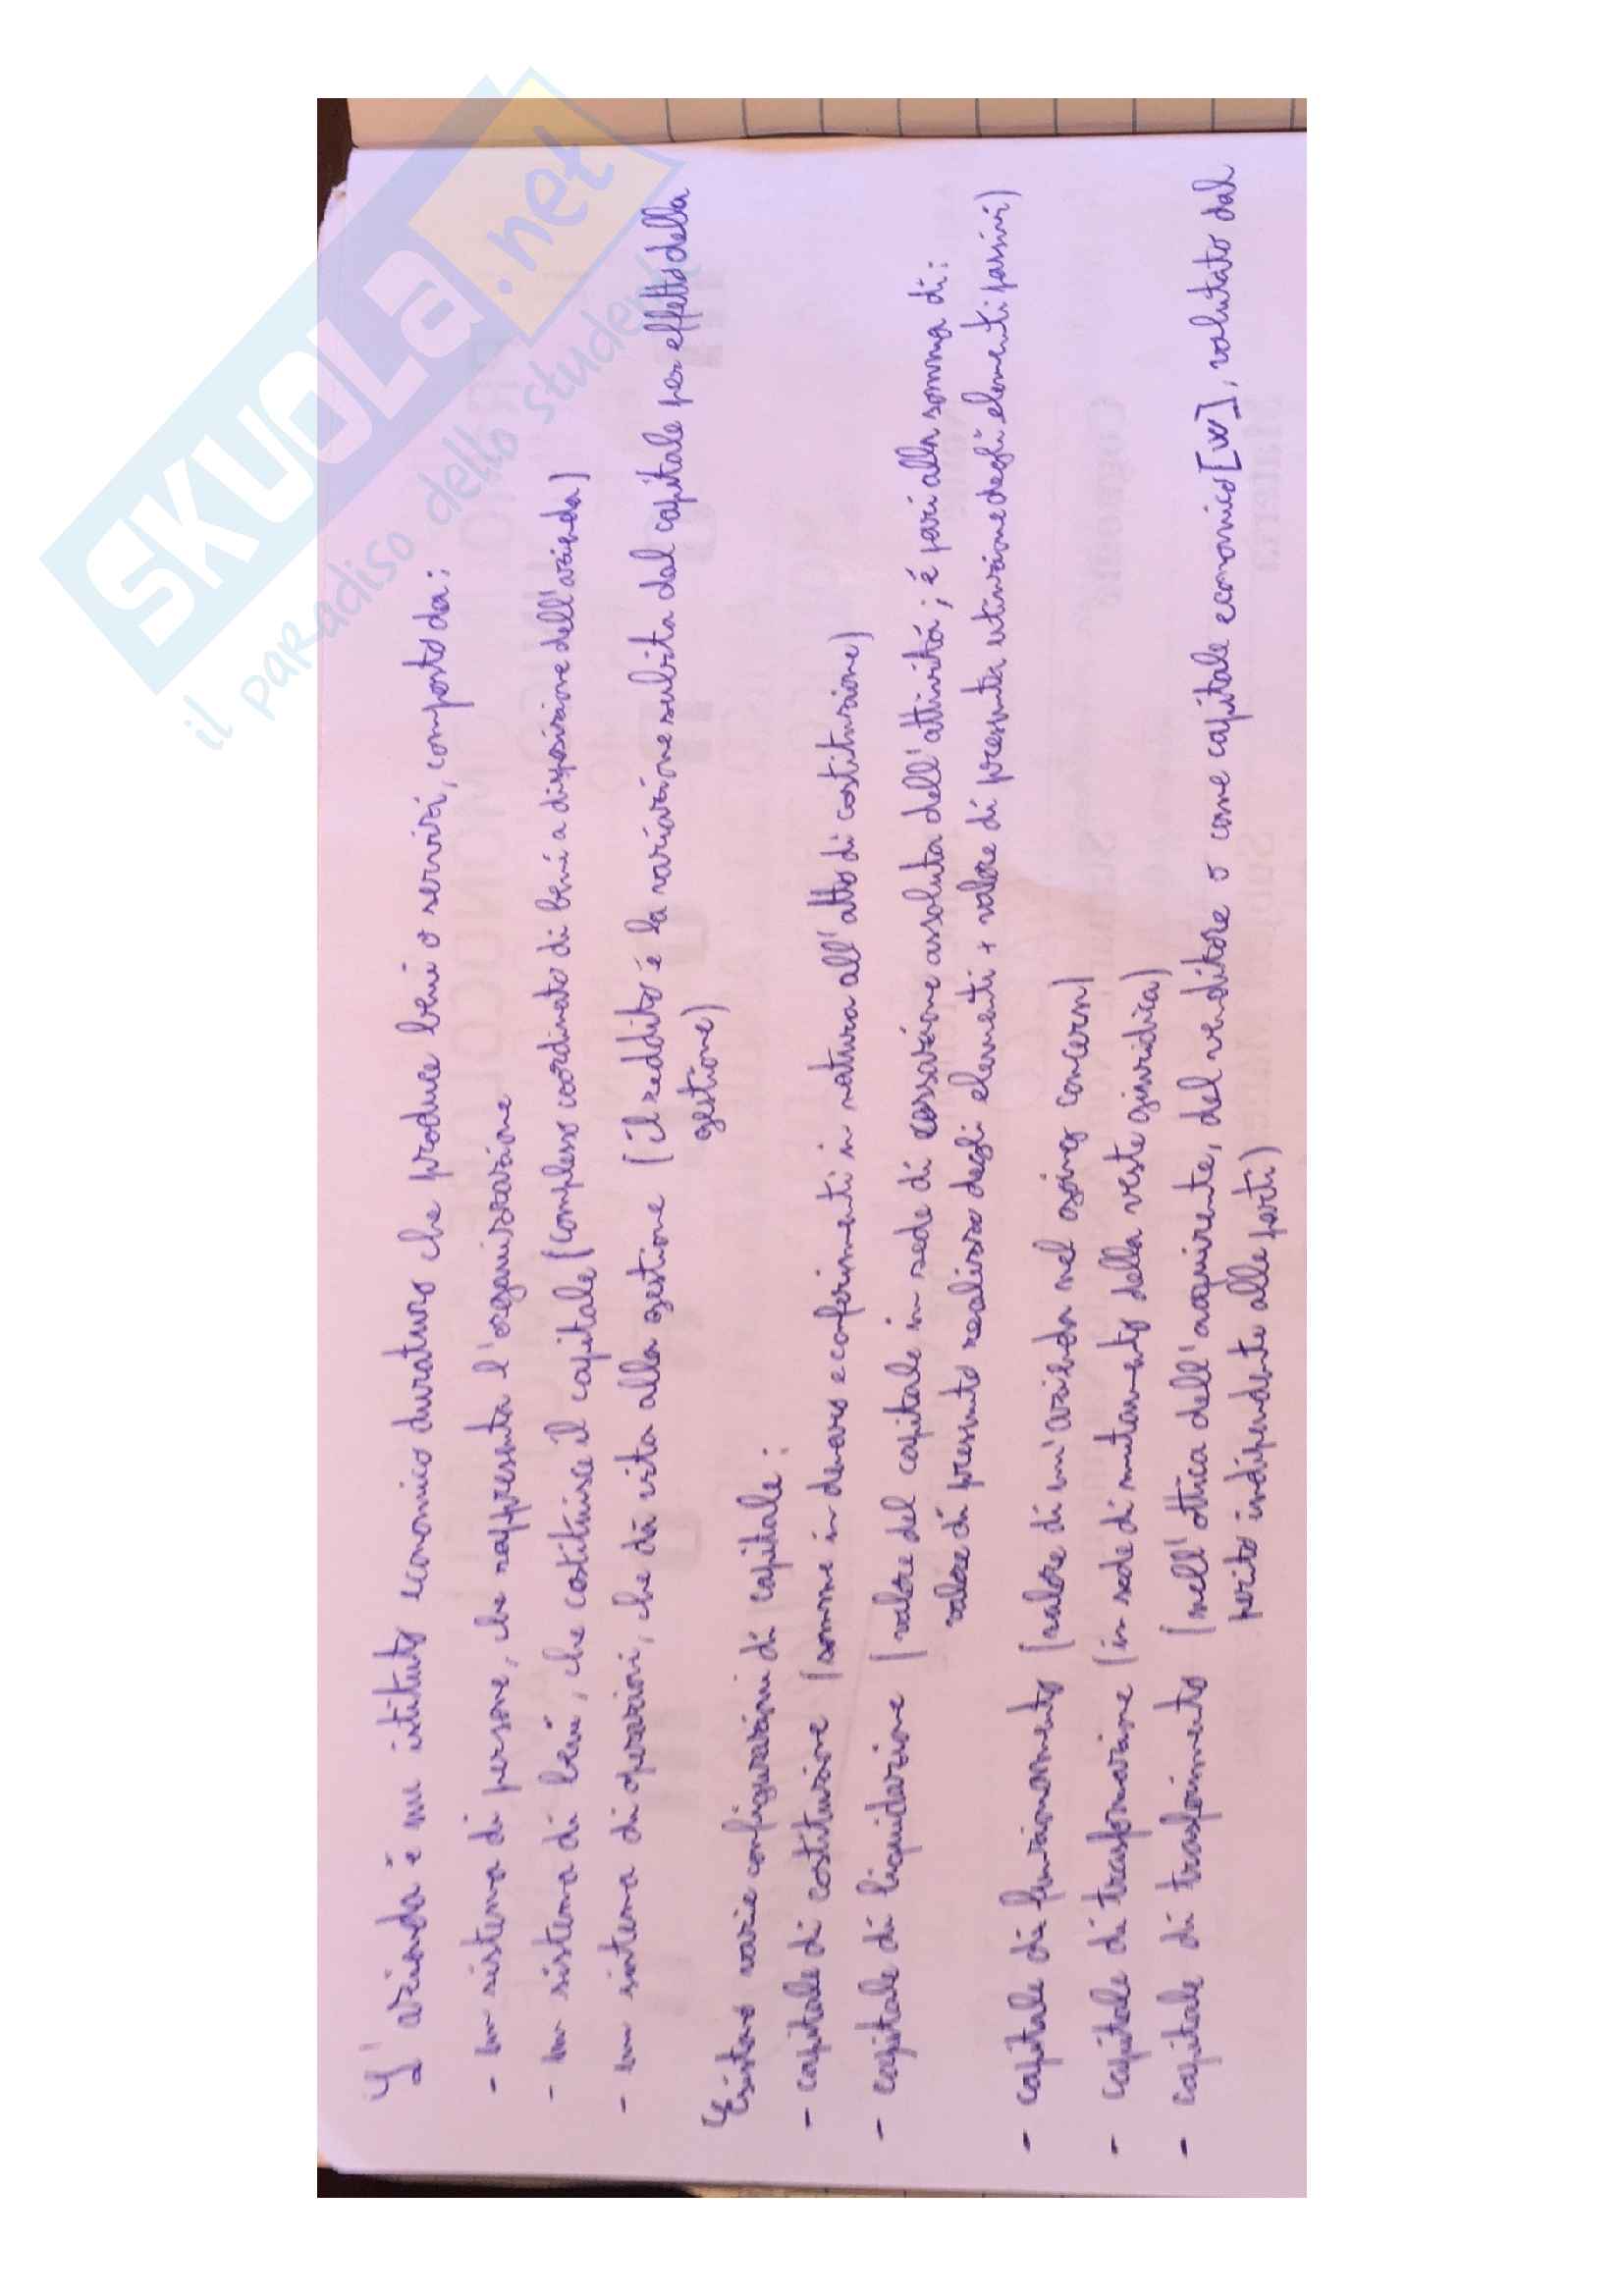 SKUOLA.net
il paradiso dello studente
L'azienda è un istituto economico duraturo che produce beni o servizi, composto da:
- un sistema di persone, che rappresenta l'organizzazione
- un sistema di beni, che costituisce il capitale (complesso coordinato di beni a disposizione dell'azienda)
- un sistema di operazioni, che dà vita alla gestione (il reddito è la variazione subita dal capitale per effetto della
gestione)
Esistono varie configurazioni di capitale:
- capitale di costituzione (somme in denaro e conferimenti in natura all'atto di costituzione)
- capitale di liquidazione (valore del capitale in sede di cessazione assoluta dell'attività; è pari alla somma di:
valore di presunto realizzo degli elementi + valore di presunta estinzione degli elementi passivi)
- capitale di funzionamento (valore di un'azienda nel going concern)
- capitale di trasformazione (in sede di mutamento della veste giuridica)
- capitale di trasferimento (nell'ottica dell'acquirente, del venditore o come capitale economico [W], valutato dal
perito indipendente alle parti)